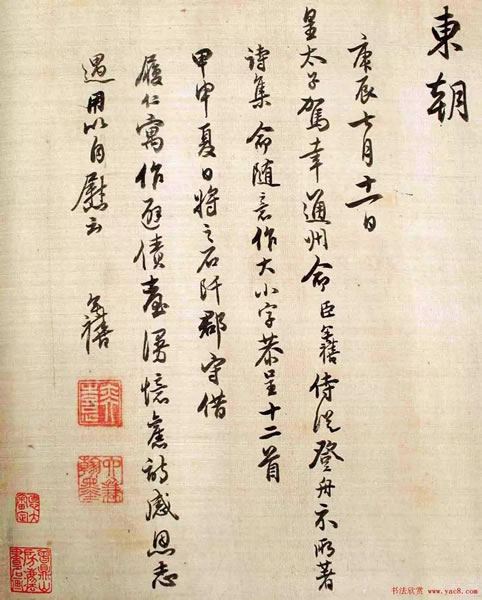 東朝
庚辰七月十一日
皇太子駕幸通州命臣年禧侍從登舟示所著
詩集命隨意作大小字恭呈十二首
甲申夏日將之石阡郡守借
履仁寓作避債臺漫憶舊詩感恩志
遇用以自慰云
年禧
书法欣赏
www.yac8.com